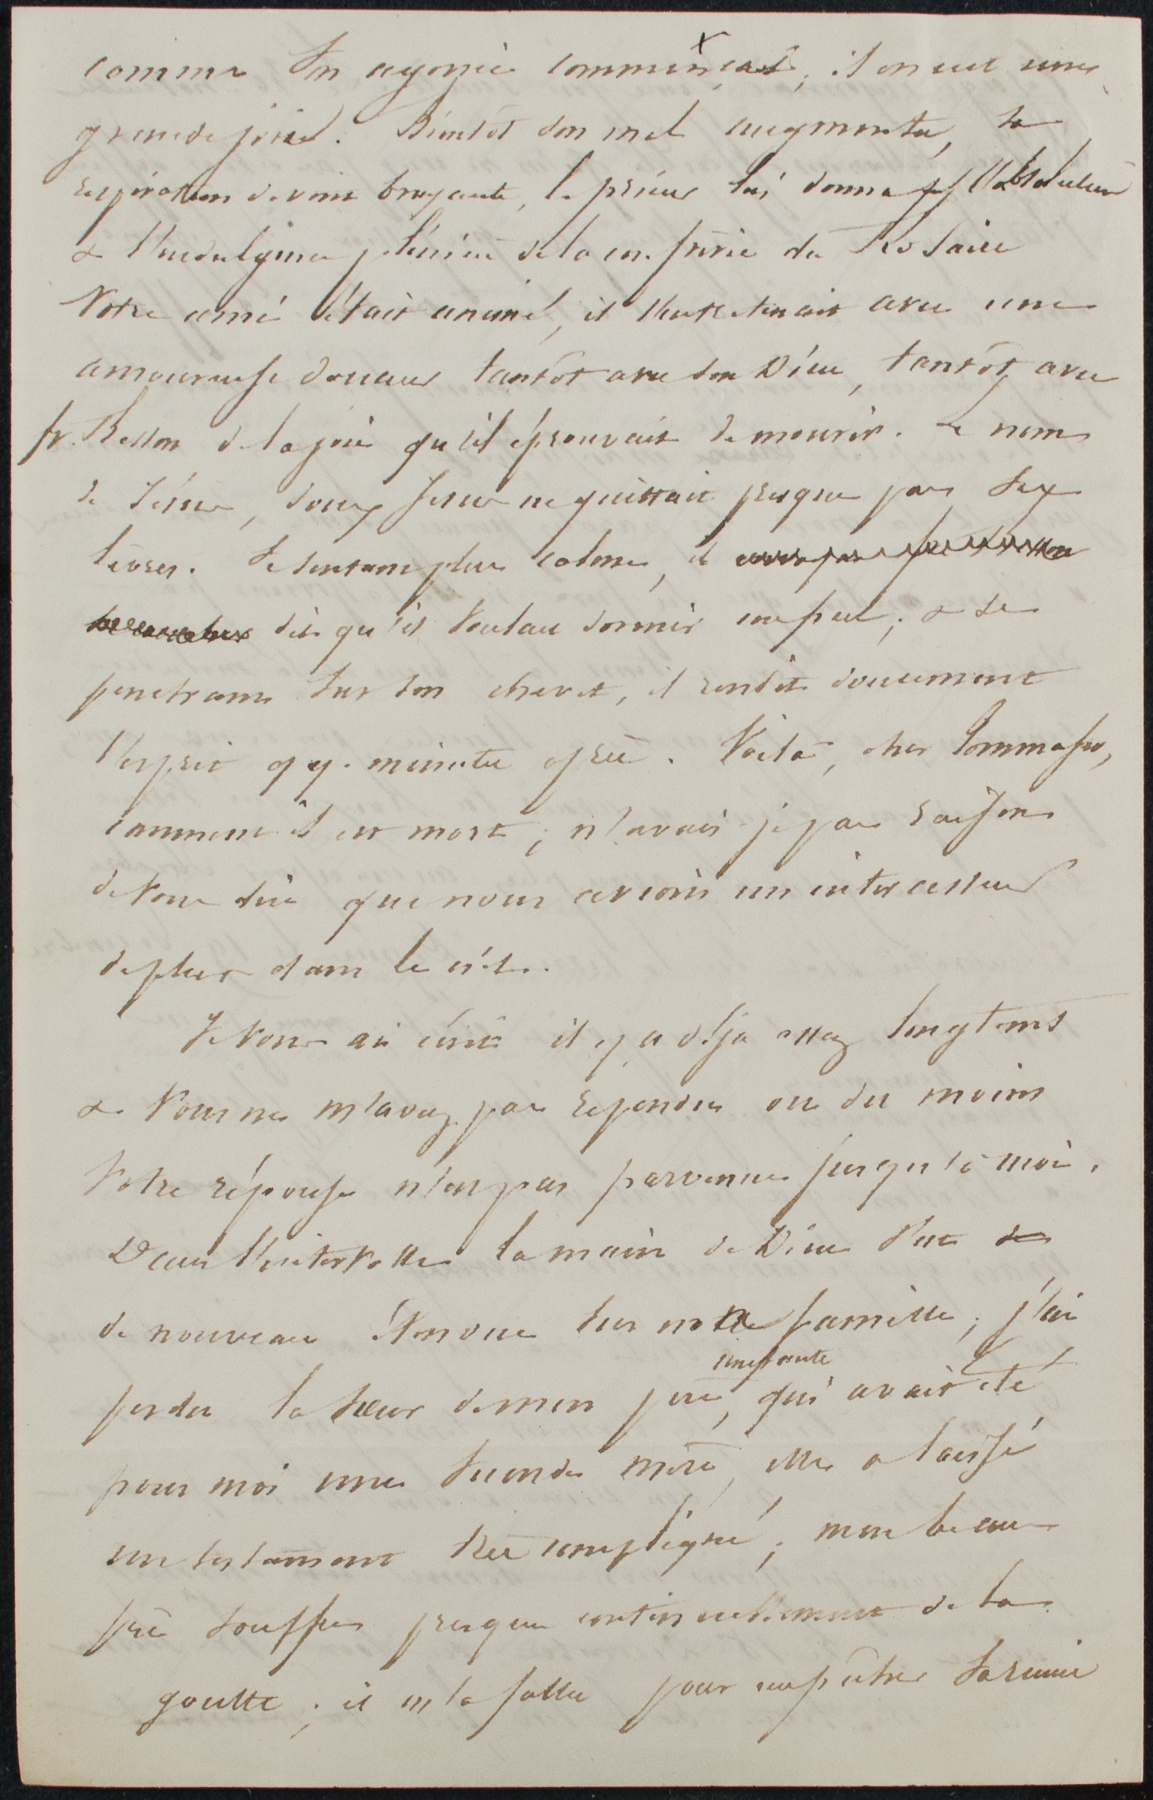 comme son agonie commençat, il en eut une
grande joie. Bientôt son mal augmenta, sa
respiration devint bruyante, le prieur lui donna l'absolution
& l'indulgence plénière de la confrérie du Rosaire
Notre ami était animé, il s'entretenait avec une
amoureuse douceur tantôt avec son Dieu, tantôt avec
fr. Besson de la joie qu'il éprouvait de mourir. Le nom
de Jésus, doux Jesus ne quittait presque pas ses
levres. Se sentant plus calme, il
dit qu'il voulait dormir un peu, & se
penchant sur son chevet, il rendit doucement
l'esprit qq. minutes après. Voilà, cher Tommaseo,
comment il est mort; n'avais-je pas raison
de vous dire que nous avions un intercesseur
de plus dans le ciel.
Je vous ai écrit il y a déja assez longtems
& vous ne m'avez pas repondu ou du moins
votre réponse n'est pas parvenue jusqu'à moi.
Dans l'intervalle la main de Dieu s'est de
de nouveau étendue sur notre famille; j'ai
perdu la sœur de mon père, qui avait été
pour moi une seconde mère, elle a laissé
un testament très compliqué; mon beau
père souffre presque continuellement de la
goutte; il m'a fallu pour empêcher sa ruine